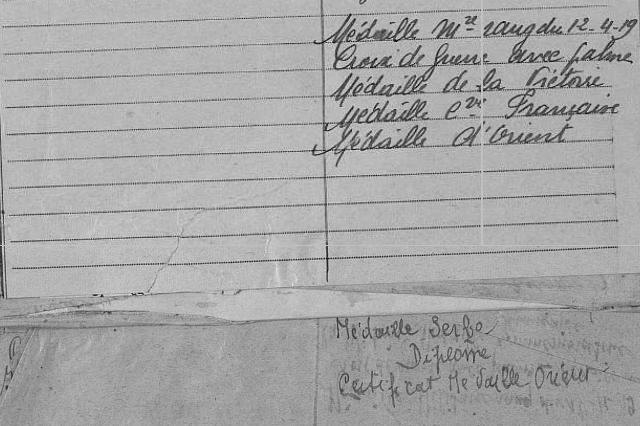 Médaille Mre rang du 12-4-19
Croix de guerre avec palme
Médaille de la Victoire
Médaille Cve Française
Médaille d'Orient
Médaille Serbe
Diplome
Certificat Médaille Orient